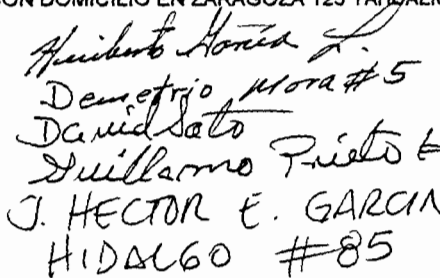 CON DOMICILIO EN ZARAGOZA 123
Heriberto García L.
Demetrio Mora #5
David Soto
Guillermo Prieto
J. HECTOR E. GARCIA
HIDALGO #85